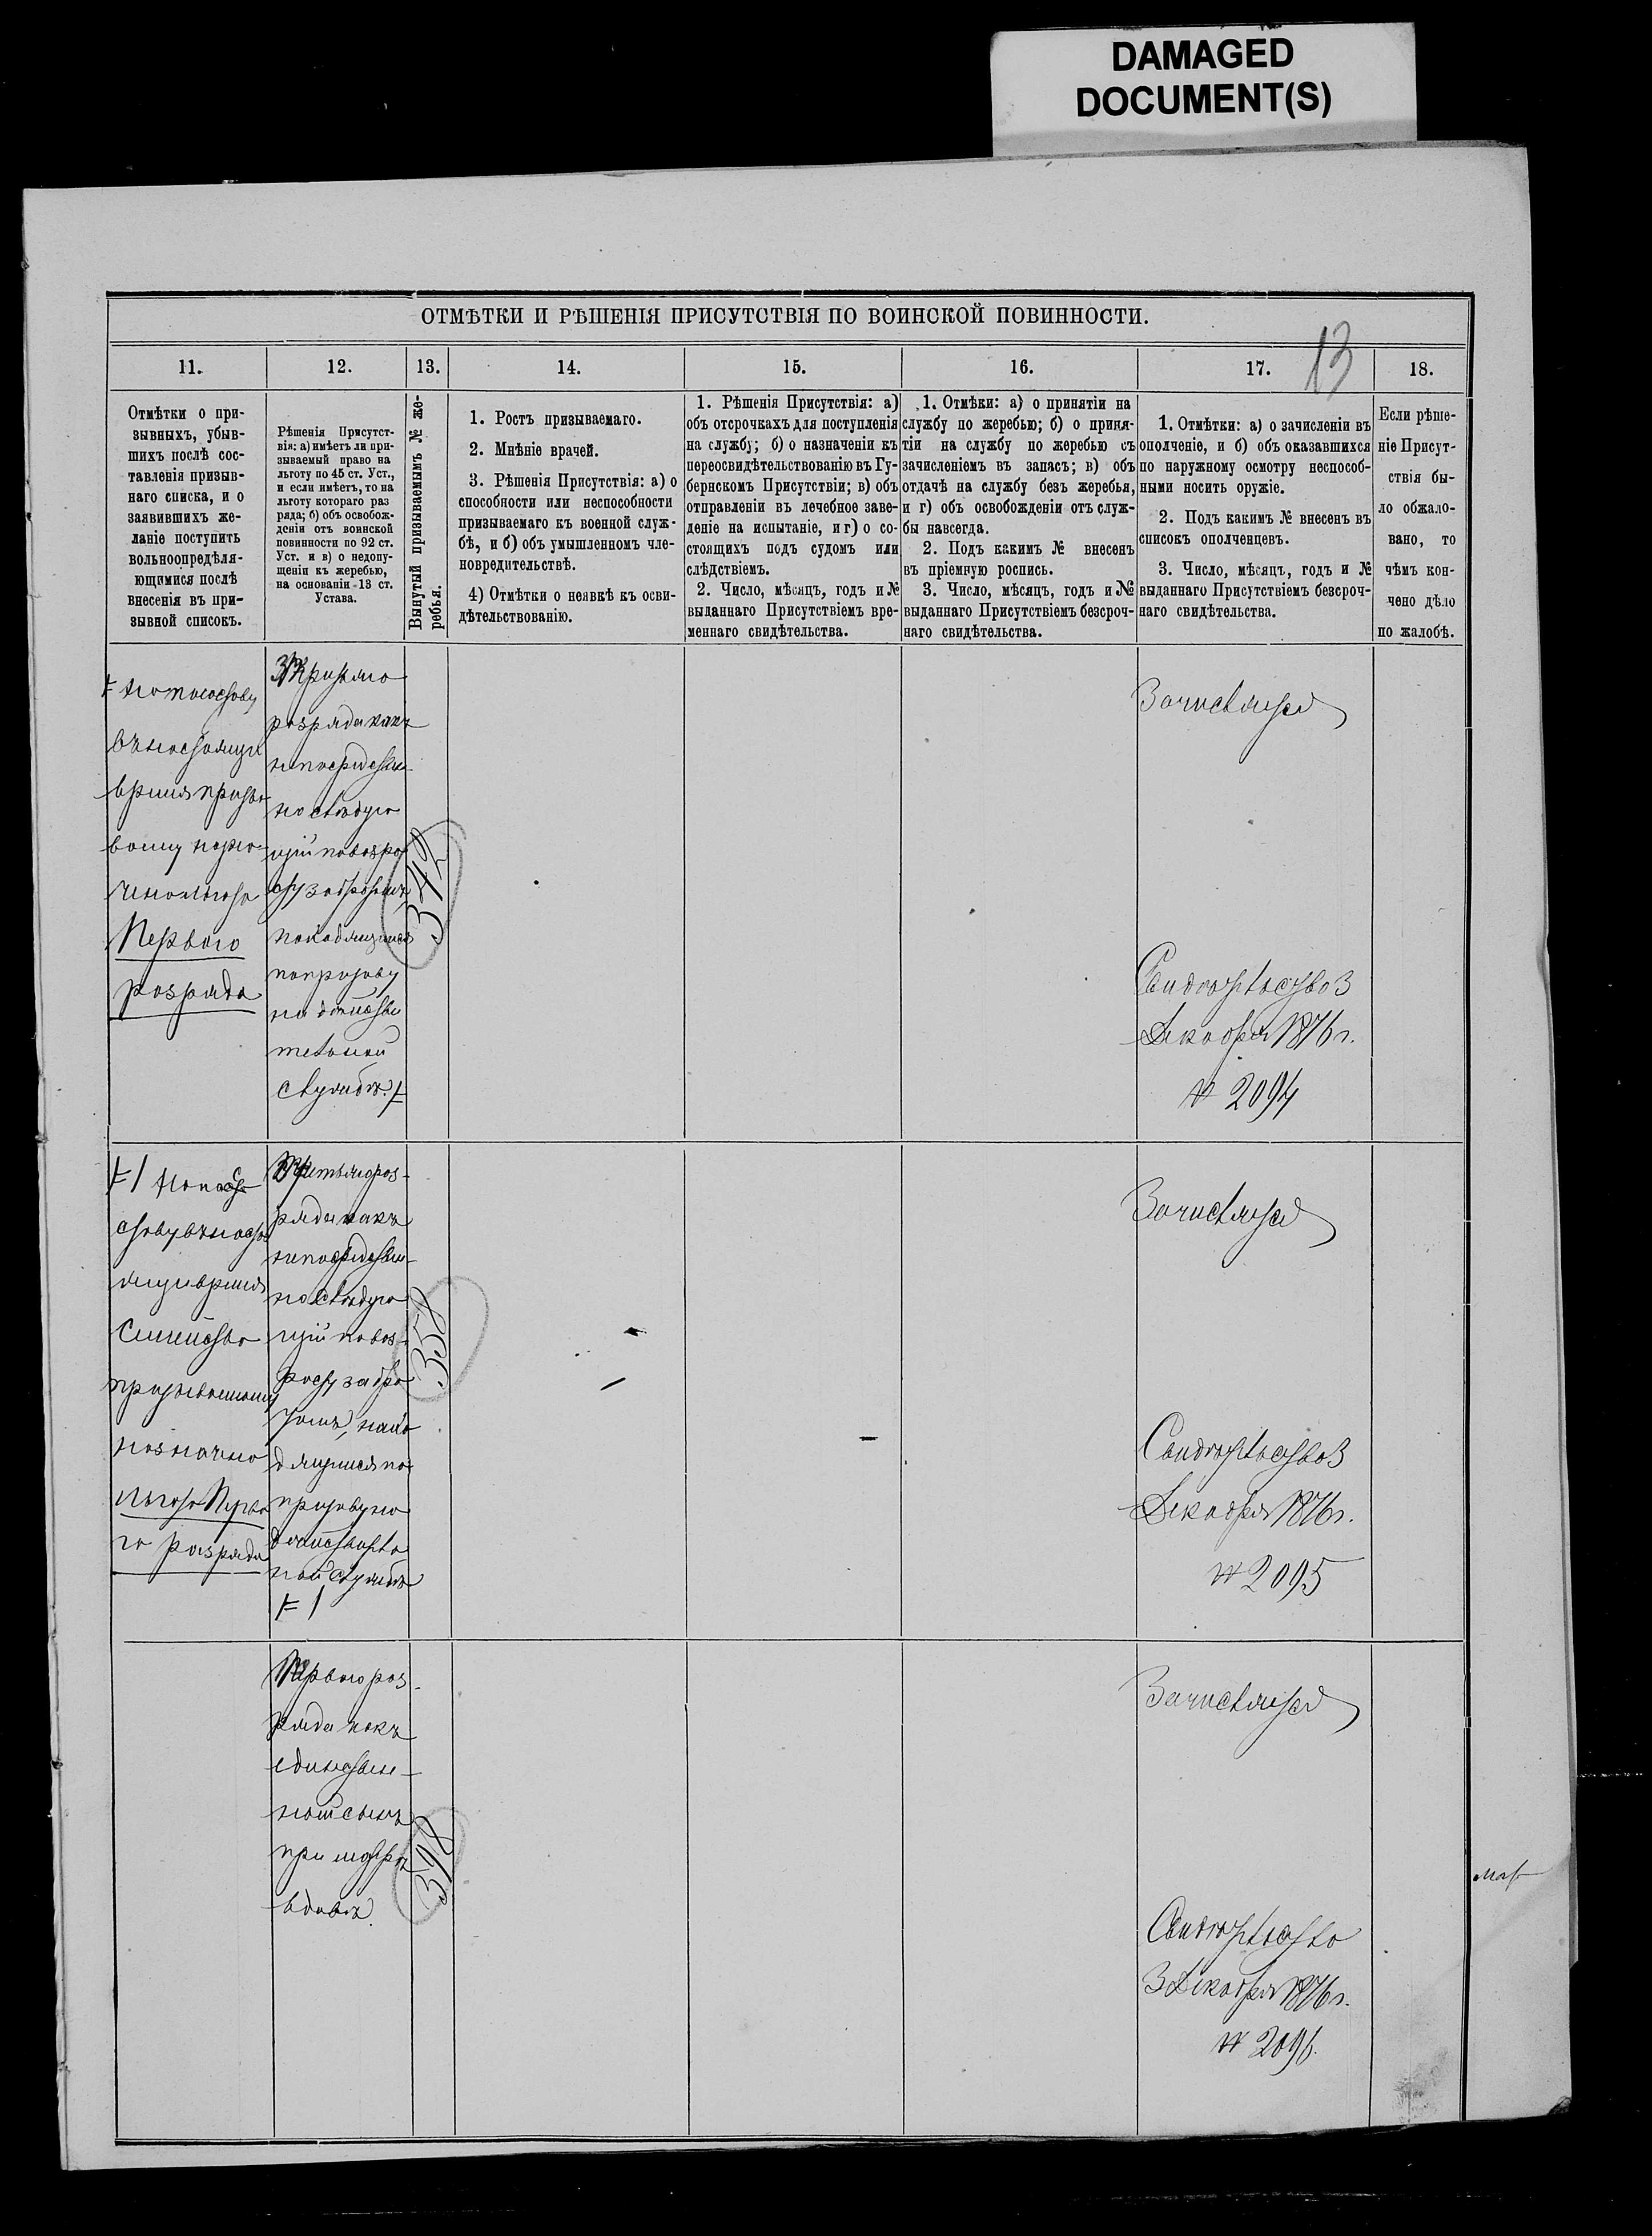 DAMAGED
DOCUMENT(S)
ОТМѢТКИ И РѢШЕНІЯ ПРИСУТСТВІЯ ПО ВОИНСКОЙ ПОВИННОСТИ.
13
11.
12.
13.
14.
15.
16.
17.
18.
Отмѣтки о при-
зывныхъ, убыв-
шихъ послѣ сос-
тавленія призыв-
наго списка, и о
заявившихъ же-
ланіе поступить
вольноопредѣля-
ющимися послѣ
внесенія въ при-
зывной списокъ.
Рѣшенія Присутст-
вія: а) имѣетъ ли при-
зываемый право на
льготу по 45 ст. Уст.,
и если имѣетъ, то на
льготу котораго раз
ряда; б) объ освобож-
деніи отъ воинской
повинности по 92 ст.
Уст. и в) о недопу-
щеніи къ жеребью,
на основаніи 13 ст.
Устава.
Вынутый призываемымъ № же-
ребья.
1. Ростъ призываемаго.
2. Мнѣніе врачей.
3. Рѣшенія Присутствія: а) о
способности или неспособности
призываемаго къ военной служ-
бѣ, и б) объ умышленномъ чле-
новредительствѣ.
4) Отмѣтки о неявкѣ къ осви-
дѣтельствованію.
1. Рѣшенія Присутствія: а)
объ отсрочкахъ для поступленія
на службу; б) о назначеніи къ
переосвидѣтельствованію въ Гу-
бернскомъ Присутствіи; в) объ
отправленіи въ лечебное заве-
деніе на испытаніе, и г) о со-
стоящихъ подъ судомъ или
слѣдствіемъ.
2. Число, мѣсяцъ, годъ и №
выданнаго Присутствіемъ вре-
меннаго свидѣтельства.
1. Отмѣки: а) о принятіи на
службу по жеребью; б) о приня-
тіи на службу по жеребью съ
зачисленіемъ въ запасъ; в) объ
отдачѣ на службу безъ жеребья,
и г) объ освобожденіи отъ служ-
бы навсегда.
2. Подъ какимъ № внесенъ
въ пріемную роспись.
3. Число, мѣсяцъ, годъ и №
выданнаго Присутствіемъ безсроч-
наго свидѣтельства.
1. Отмѣтки: а) о зачисленіи въ
ополченіе, и б) объ оказавшихся
по наружному осмотру неспособ-
ными носить оружіе.
2. Подъ какимъ № внесенъ въ
списокъ ополченцевъ.
3. Число, мѣсяцъ, годъ и №
выданнаго Присутствіемъ безсроч-
наго свидѣтельства.
Если рѣше-
ніе Присут-
ствія бы-
ло обжало-
вано, то
чѣмъ кон-
чено дѣло
по жалобѣ.
время
Перваго
розряда
Третьяго
розряда какъ
непосредствен-
но слѣдую
щій по возра
сту за братомъ
находящимся
по призыву
на дѣйстви
тельной
службѣ.
342
Зачисляется
Свидѣтельство 3
Декабря 1876 г.
№ 2094
семейства
Перва
го разряда
Третьяго роз-
ряда какъ
непосредствен-
но слѣдую
щій по воз-
расту за бра
томъ, нахо
дящимся по
призыву на
дѣйствитель
ной службѣ
358
Зачисляется
Свидѣтельство 3
Декабря 1876 г.
№ 2095
Перваго роз-
ряда какъ
единствен-
ный сынъ
при матери
вдовѣ.
398
Зачисляется
Свидѣтельство
3 Декабря 1876 г.
№ 2096.